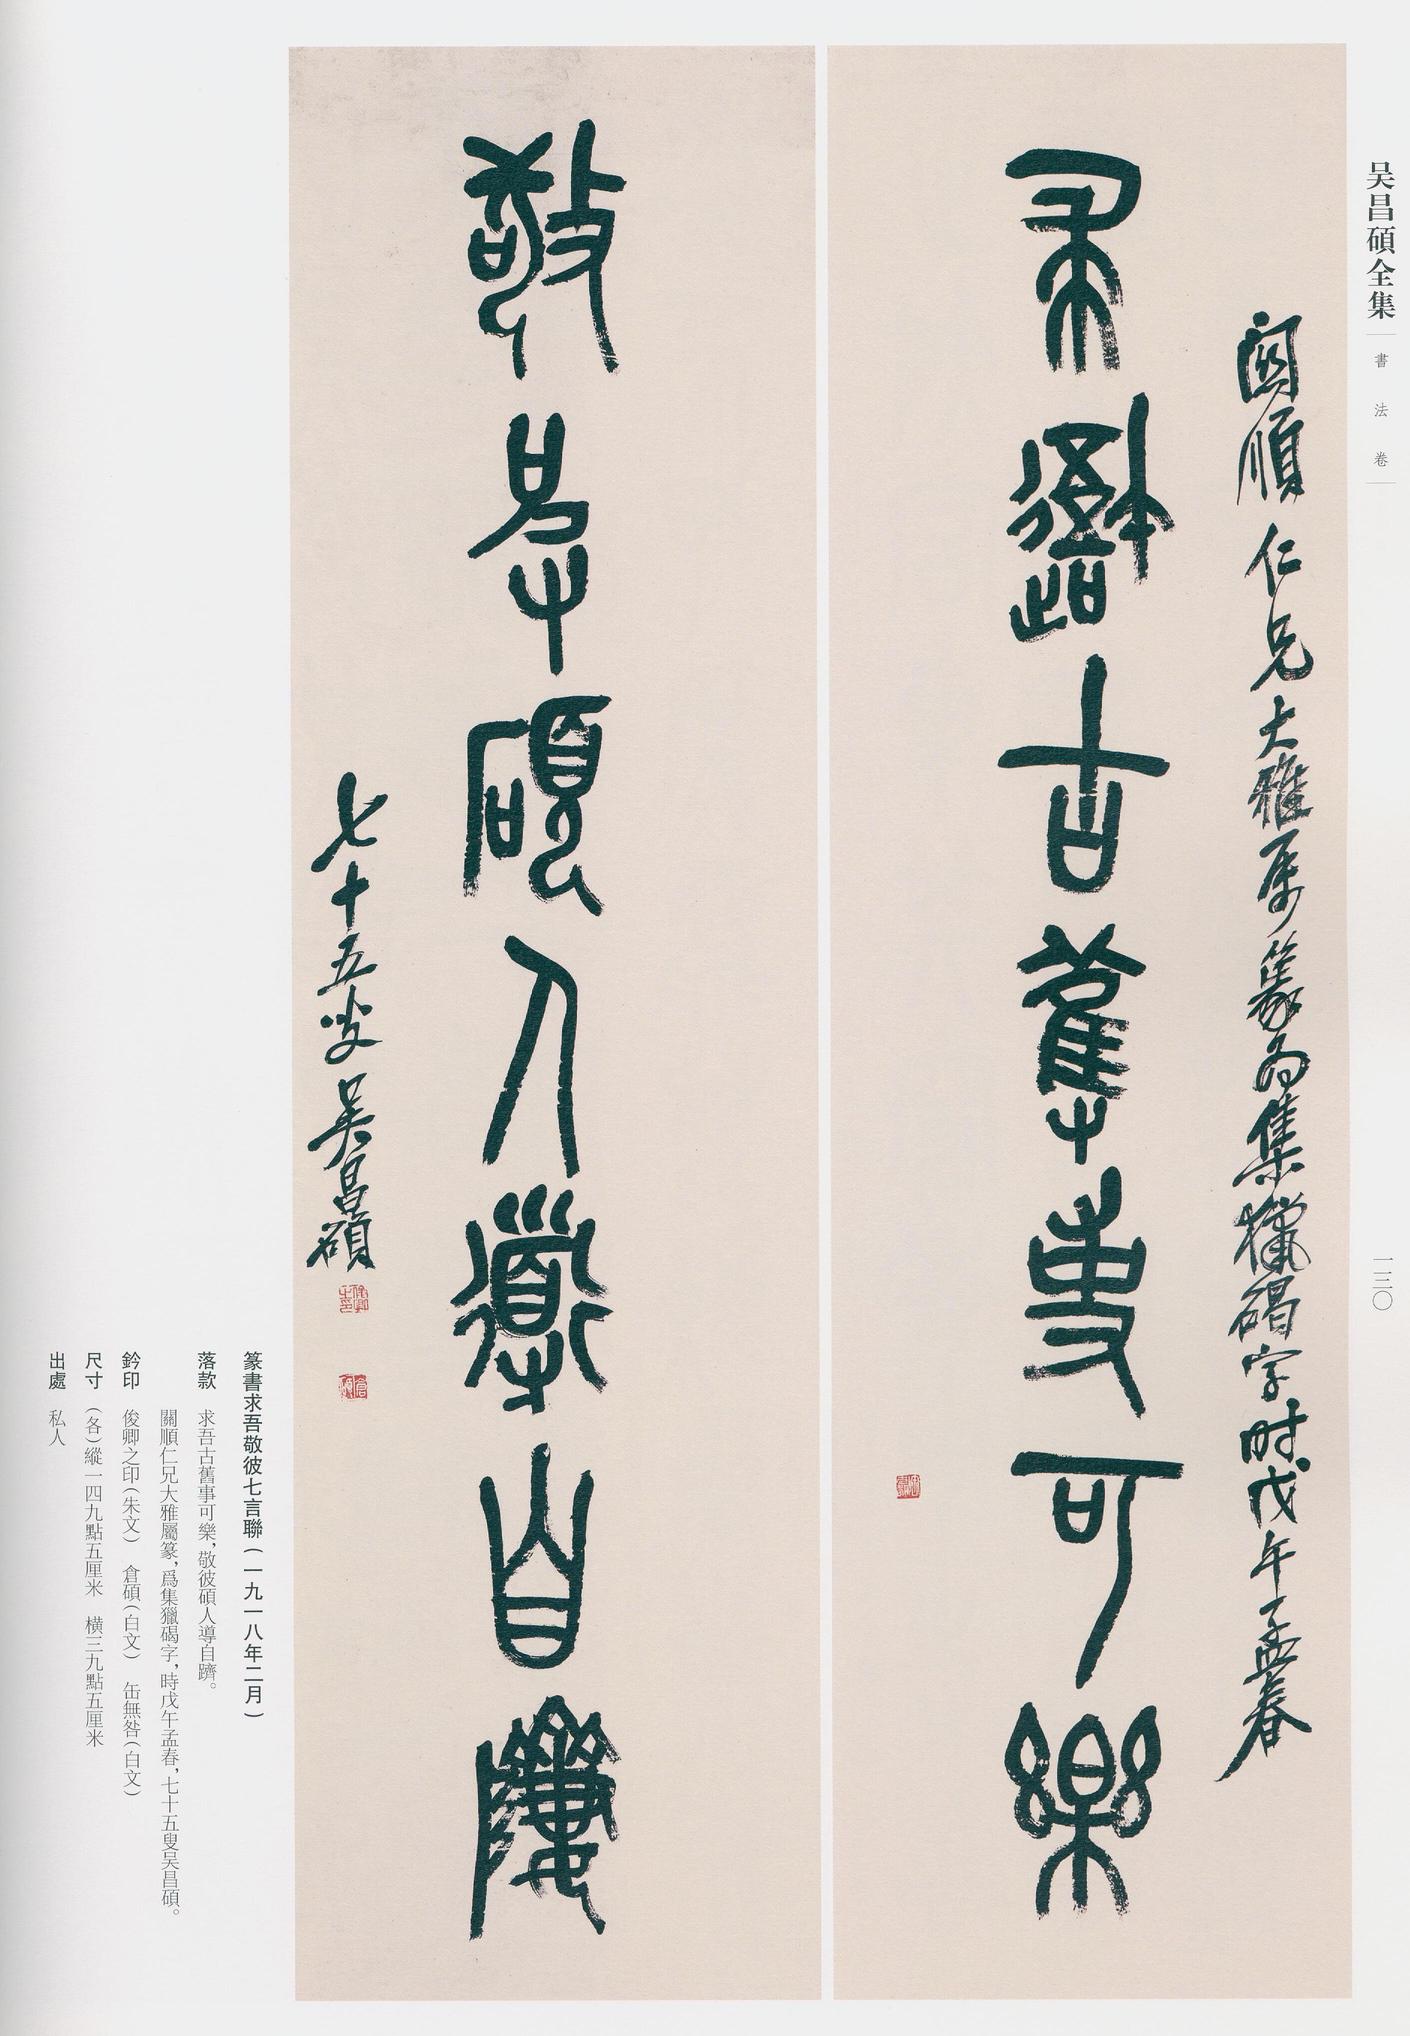 吴昌碩全集
書法卷
一三〇
關順仁兄大雅属篆為集獵碣字时戊午孟春
求䢔古舊事可樂
敬彼碩人導自隮
七十五叟吴昌碩
俊卿之印
倉碩
篆書求吾敬彼七言聯(一九一八年二月)
落款 求吾古舊事可樂,敬彼碩人導自躋。
關順仁兄大雅屬篆,爲集獵碣字,時戊午孟春,七十五叟吴昌碩。
鈐印 俊卿之印(朱文) 倉碩(白文) 缶無咎(白文)
尺寸 (各)縱一四九點五厘米 橫三九點五厘米
出處 私人